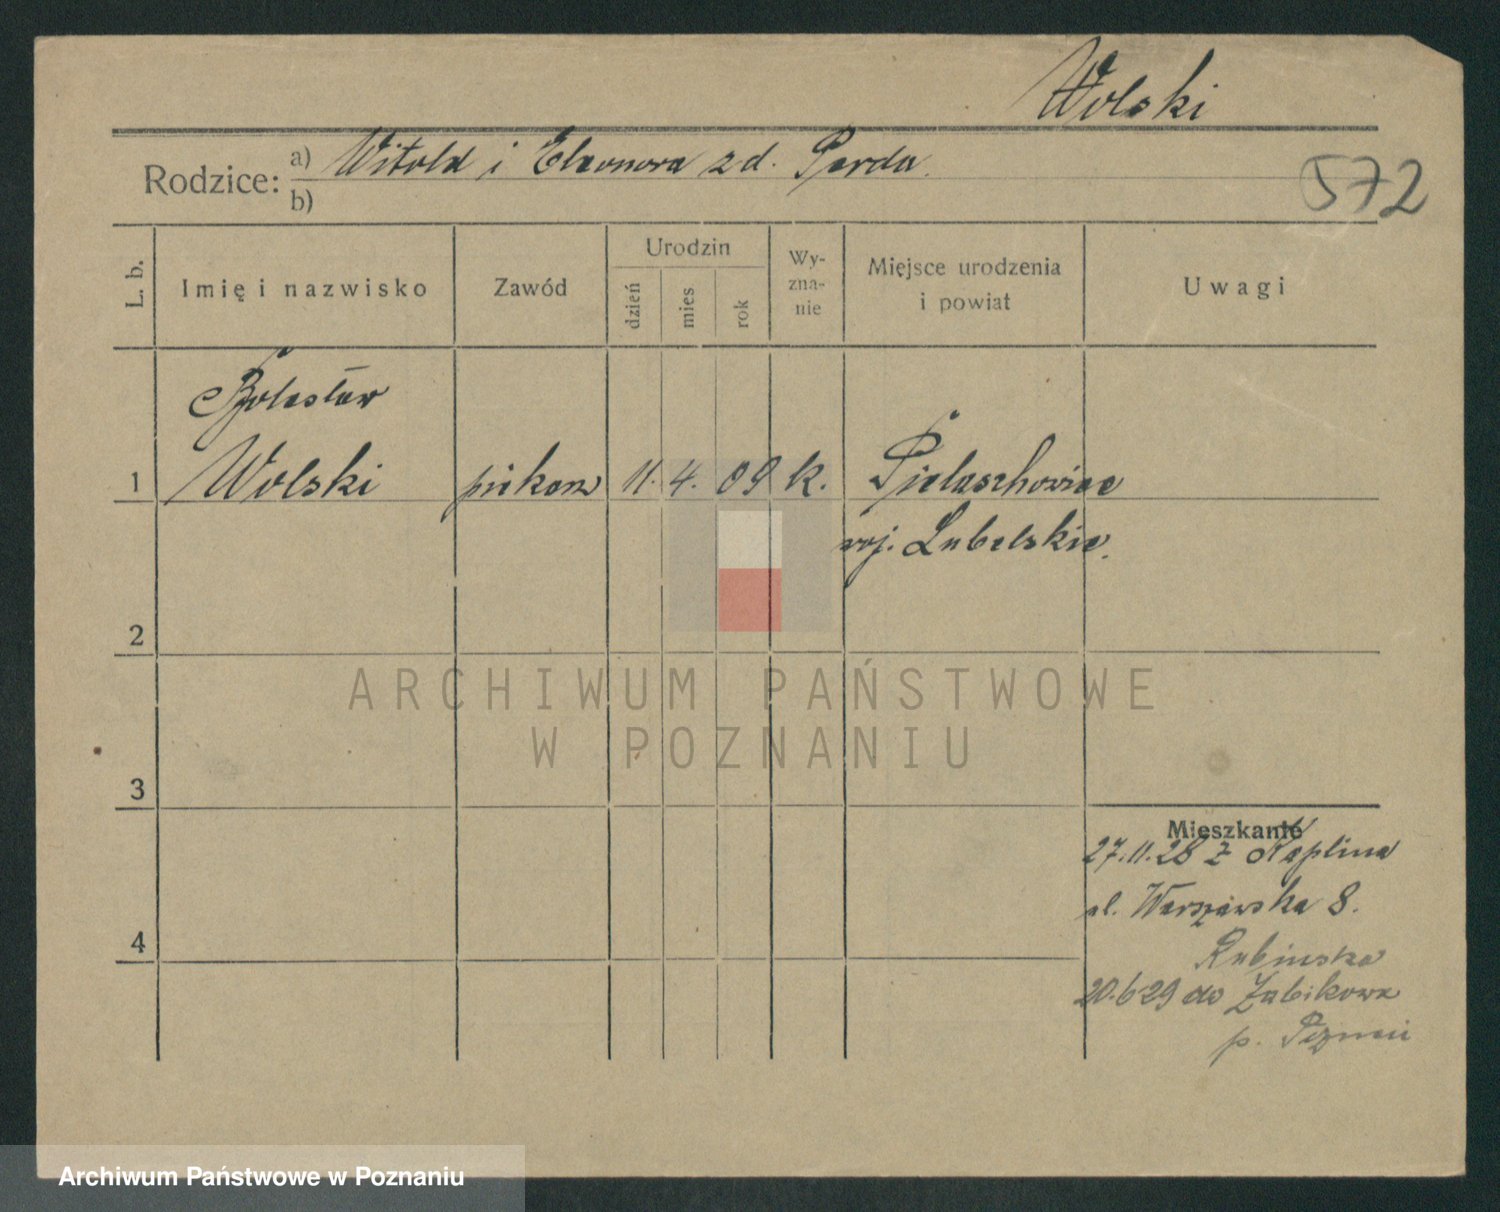 Wolski
Rodzice: a) Witold i Eleonora zd. Perda.
b)
572
L. b.
Imię i nazwisko
Zawód
Urodzin
dzień
mies
rok
Wy-
zna-
nie
Miejsce urodzenia
i powiat
Uwagi
Bolesław
1 Wolski piekarz 11. 4. 09 k. Pielaszkowice
woj. Lubelskie.
2
ARCHIWUM PAŃSTWOWE
W POZNANIU
3
Mieszkanie
27.11.28 z Keplina
ul. Warszawska 8.
Rubinska
4
20.6 29 do Żabikowa
p. Poznań
Archiwum Państwowe w Poznaniu